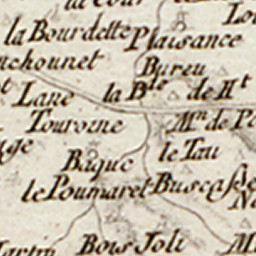 la Cour
la Bourdette
Plaisance
uchounet
Bureu
Lane
la B^te de H^t
Tourorne
M^n de Pe
age
Baque
le Tau
le Poumaret
Buscasse
Bois Joli